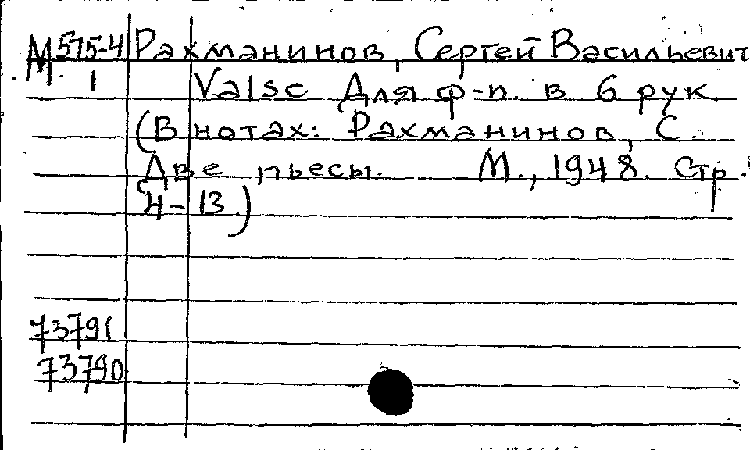 М 575-4 Рахманинов, Сергей Васильевич
М 1 Valse Для ф-п. в 6 рук.
(В нотах: Рахманинов, С.
Две пьесы. М., 1948. Стр.
4-13.)
73791
73790